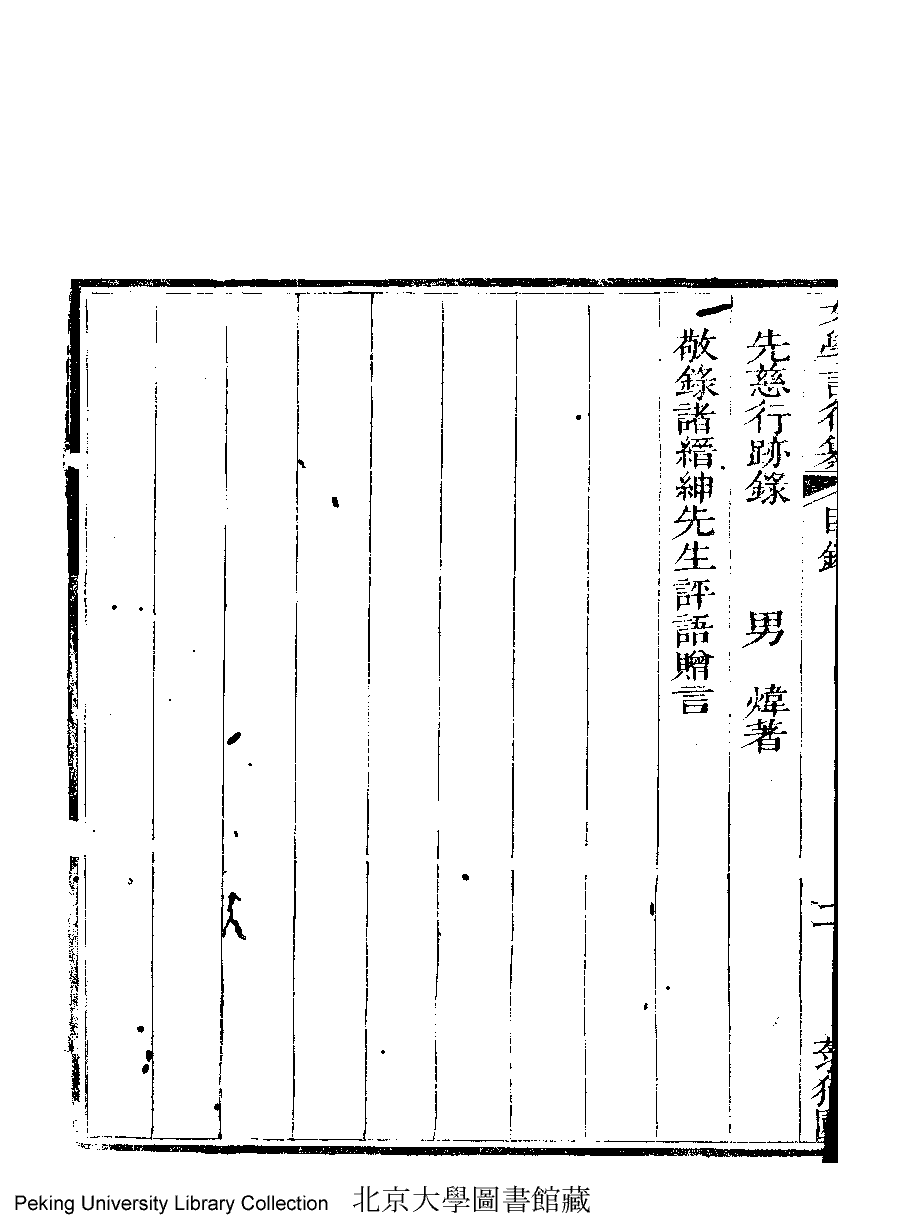 女學言行纂 目錄 二
先慈行跡錄 男 煒著
敬錄諸縉紳先生評語贈言
Peking University Library Collection 北京大學圖書館藏